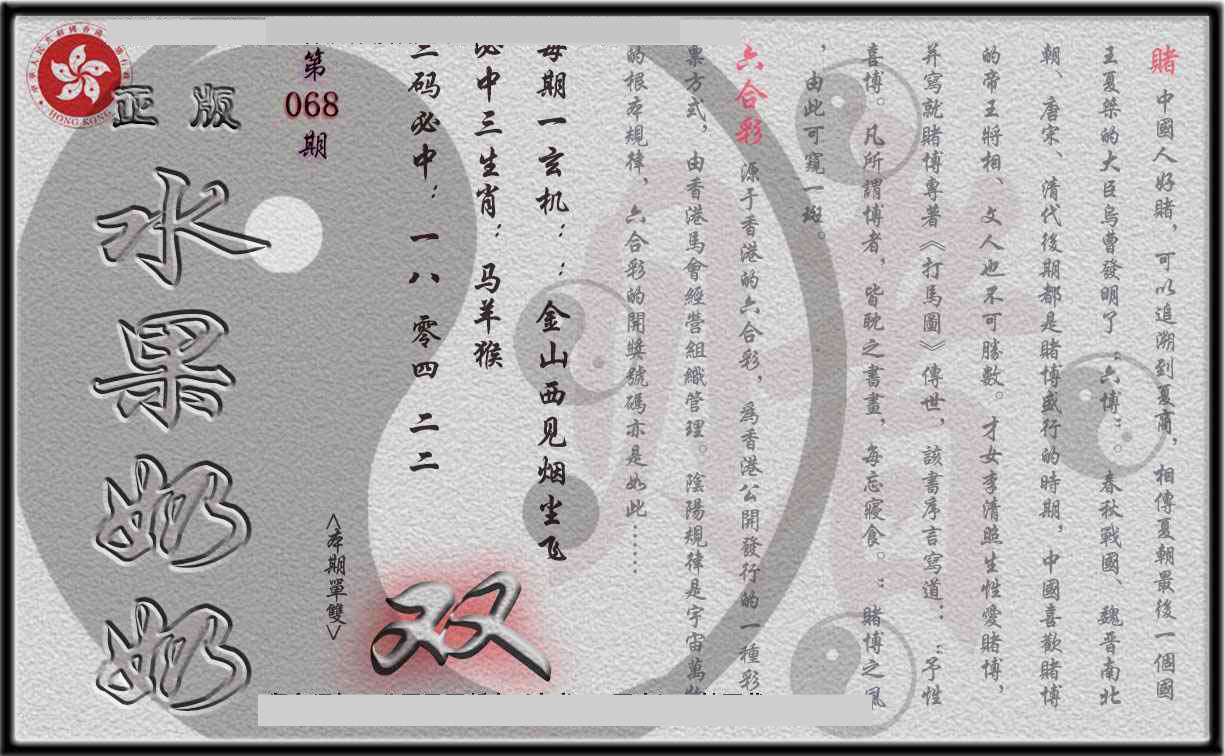 賭 中國人好賭，可以追溯到夏商，相傳夏朝最後一個國
王夏桀的大臣烏曹發明了“六博”。春秋戰國、魏晉南北
朝、唐宋、清代後期都是賭博盛行的時期，中國喜歡賭博
的帝王將相、文人也不可勝數。才女李清照生性愛賭博，
并寫就賭博專著《打馬圖》傳世，該書序言寫道：“予性
喜博。凡所謂博者，皆耽之晝畫，每忘寢食。”賭博之風
，由此可窺一斑。
六合彩 源于香港的六合彩，爲香港公開發行的一種彩
票方式，由香港馬會經營組織管理。陰陽規律是宇宙萬物
的根本規律、六合彩的開獎號碼亦是如此……
每期一玄机：：金山西见烟尘飞
必中三生肖：马羊猴
三码必中：一八 零四 二二
第
068
期
<本期單雙>
双
正版
水果奶奶
HONG KONG